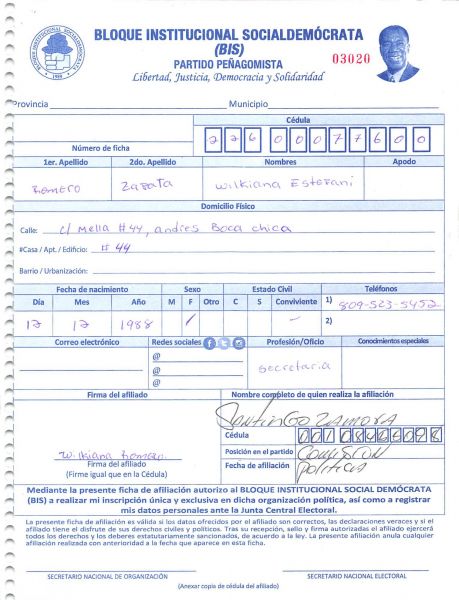 BLOQUE INSTITUCIONAL SOCIALDEMÓCRATA
(BIS)
03020
PARTIDO PEÑAGOMISTA
Libertad, Justicia, Democracia y Solidaridad
Provincia Municipio
Cédula
Número de ficha 22600077600
1er. Apellido 2do. Apellido Nombres Apodo
Romero Zapata Wilkiana Estefani
Domicilio Físico
Calle: c/ Mella #44, andres Boca chica
#Casa / Apt. / Edificio: # 44
Barrio / Urbanización:
Fecha de nacimiento Sexo Estado Civil Teléfonos
Día Mes Año M F Otro C S Conviviente 1) 809-523-5452
12 12 1988 / – 2)
Correo electrónico Redes sociales Profesión/Oficio Conocimientos especiales
@ secretaria
@
@
Firma del afiliado Nombre completo de quien realiza la afiliación
Santiago Zamora
Cédula
Wilkiana Romero Posición en el partido Comisión
Firma del afiliado Fecha de afiliación Politica
(Firme igual que en la Cédula)
Mediante la presente ficha de afiliación autorizo al BLOQUE INSTITUCIONAL SOCIAL DEMÓCRATA
(BIS) a realizar mi inscripción única y exclusiva en dicha organización política, así como a registrar
mis datos personales ante la Junta Central Electoral.
La presente ficha de afiliación es válida si los datos ofrecidos por el afiliado son correctos, las declaraciones veraces y si el
afiliado tiene el disfrute de sus derechos civiles y políticos. Tras su recepción, sello y firma autorizadas el afiliado ejercerá
todos los derechos y los deberes estatutariamente sancionados, de acuerdo a la ley. La presente afiliación anula cualquier
afiliación realizada con anterioridad a la fecha que aparece en esta ficha.
SECRETARIO NACIONAL DE ORGANIZACIÓN SECRETARIO NACIONAL ELECTORAL
(Anexar copia de cédula del afiliado)